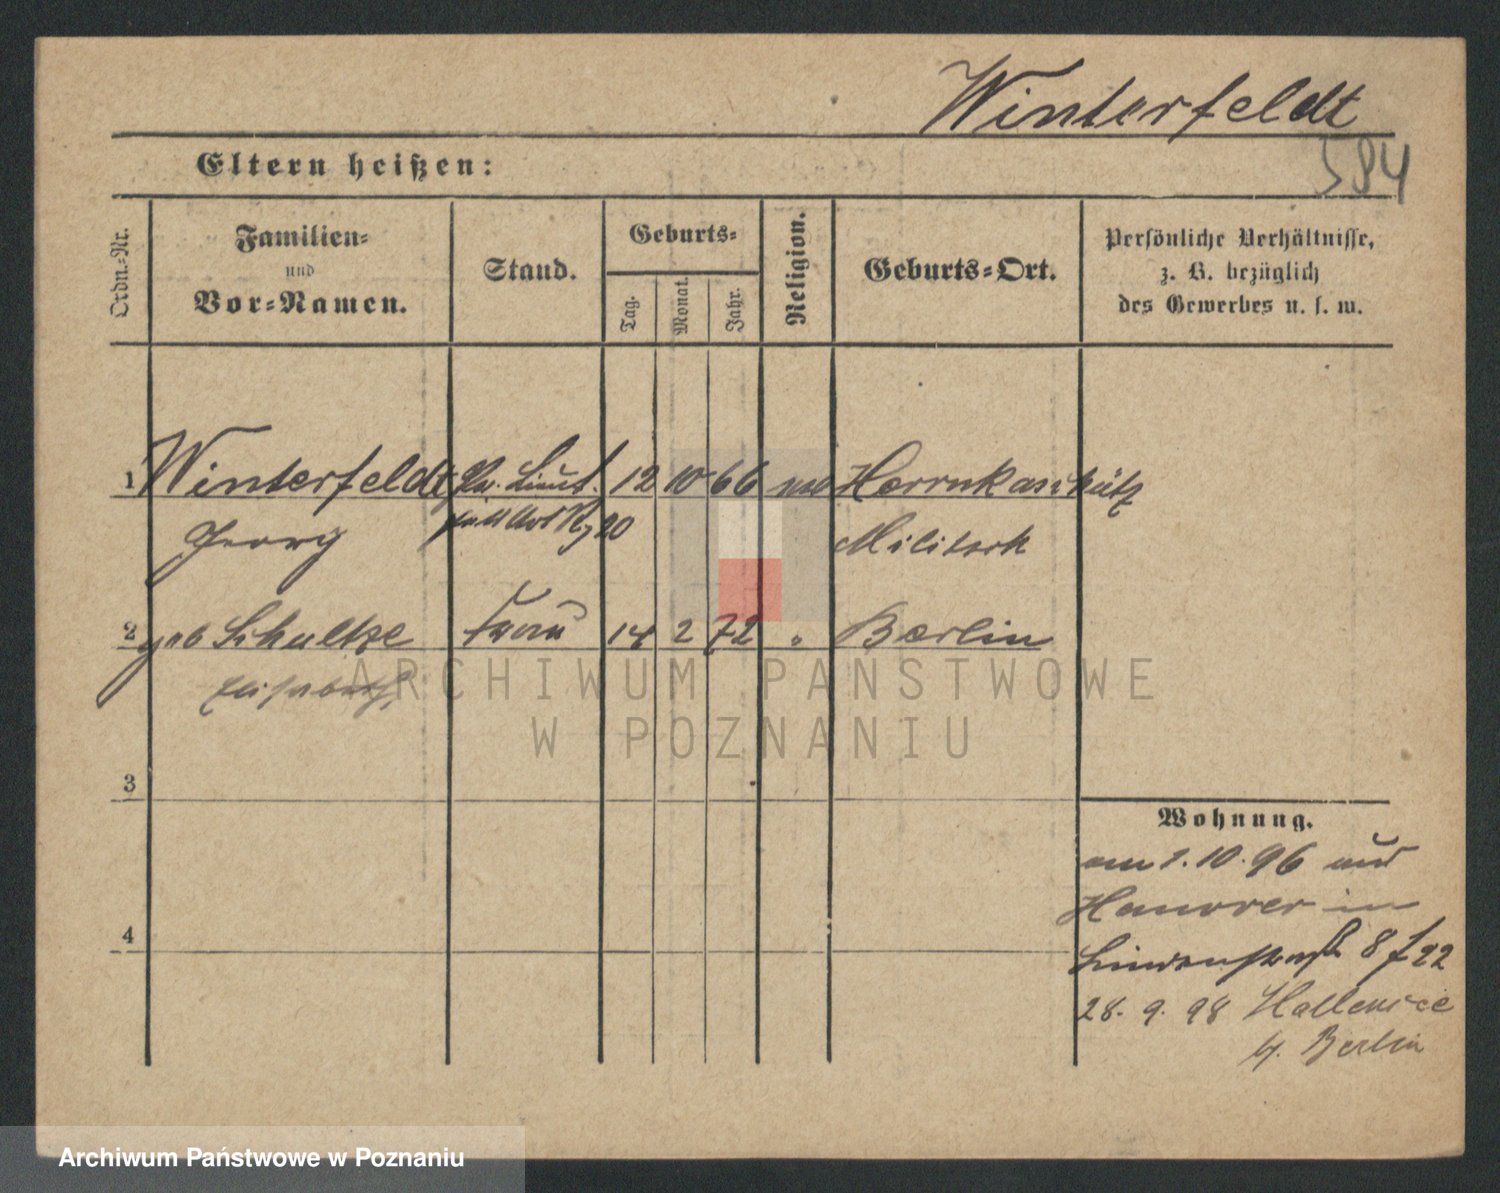 Winterfeldt
584
Eltern heißen:
Ordn.-Nr.
Familien-
und
Vor-Namen.
Stand.
Geburts-
Tag.
Monat.
Jahr.
Religion.
Geburts-Ort.
Persönliche Verhältnisse,
z. B. bezüglich
des Gewerbes u. s. w.
1 Winterfeldt Pr. Lieut. 12 10 66 Herrnkaschütz
Georg Feld Art Rg 20 Militsch
2 geb Schultze Frau 14 2 72 " Berlin
Elisabeth
3
4
Wohnung.
am 1.10.96 aus
Hannover in
Lindenstraße 8 f 22
28. 9. 98 Hallensee
b. Berlin
ARCHIWUM PAŃSTWOWE
W POZNANIU
Archiwum Państwowe w Poznaniu